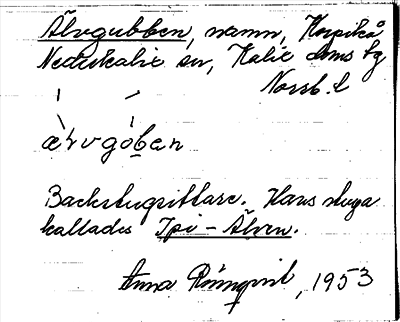 Älvgubben, namn, Korpikå
Nederkalix sn, Kalix doms bg
Norrb. l
ærvgóben
Backstugsittare. Hans stuga
kallades Ipi-Älven.
Anna Rönnqvist, 1953